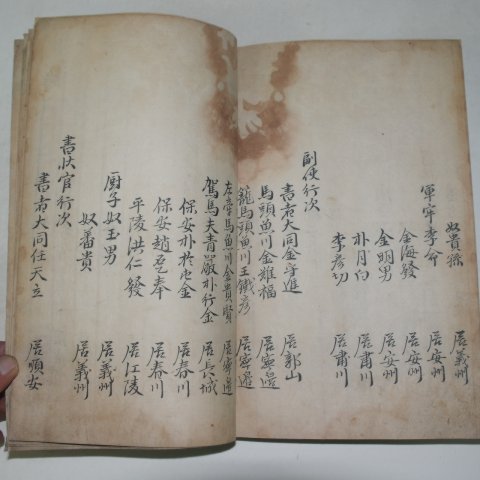 奴貴孫 居義州
軍牢李 居安州
金海發 居安州
金明男 居安州
朴月白 居肅川
李彦 居肅川
副使行次
書者大同金守進 居郭山
馬頭魚川金雄福 居寧邊
籠馬頭魚川王鐵彦 居寧邊
左牽馬魚川金貴賢 居寧邊
駕馬夫青巖朴行金 居長城
保安朴於屯金 居春川
保安趙乭奉 居春川
平陵洪仁發 居江陵
厨子奴玉男 居義州
奴蕃貴 居義州
書狀官行次
書者大同任天立 居順安